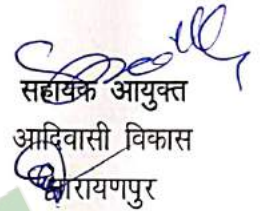 सहायक आयुक्त
आदिवासी विकास
नारायणपुर